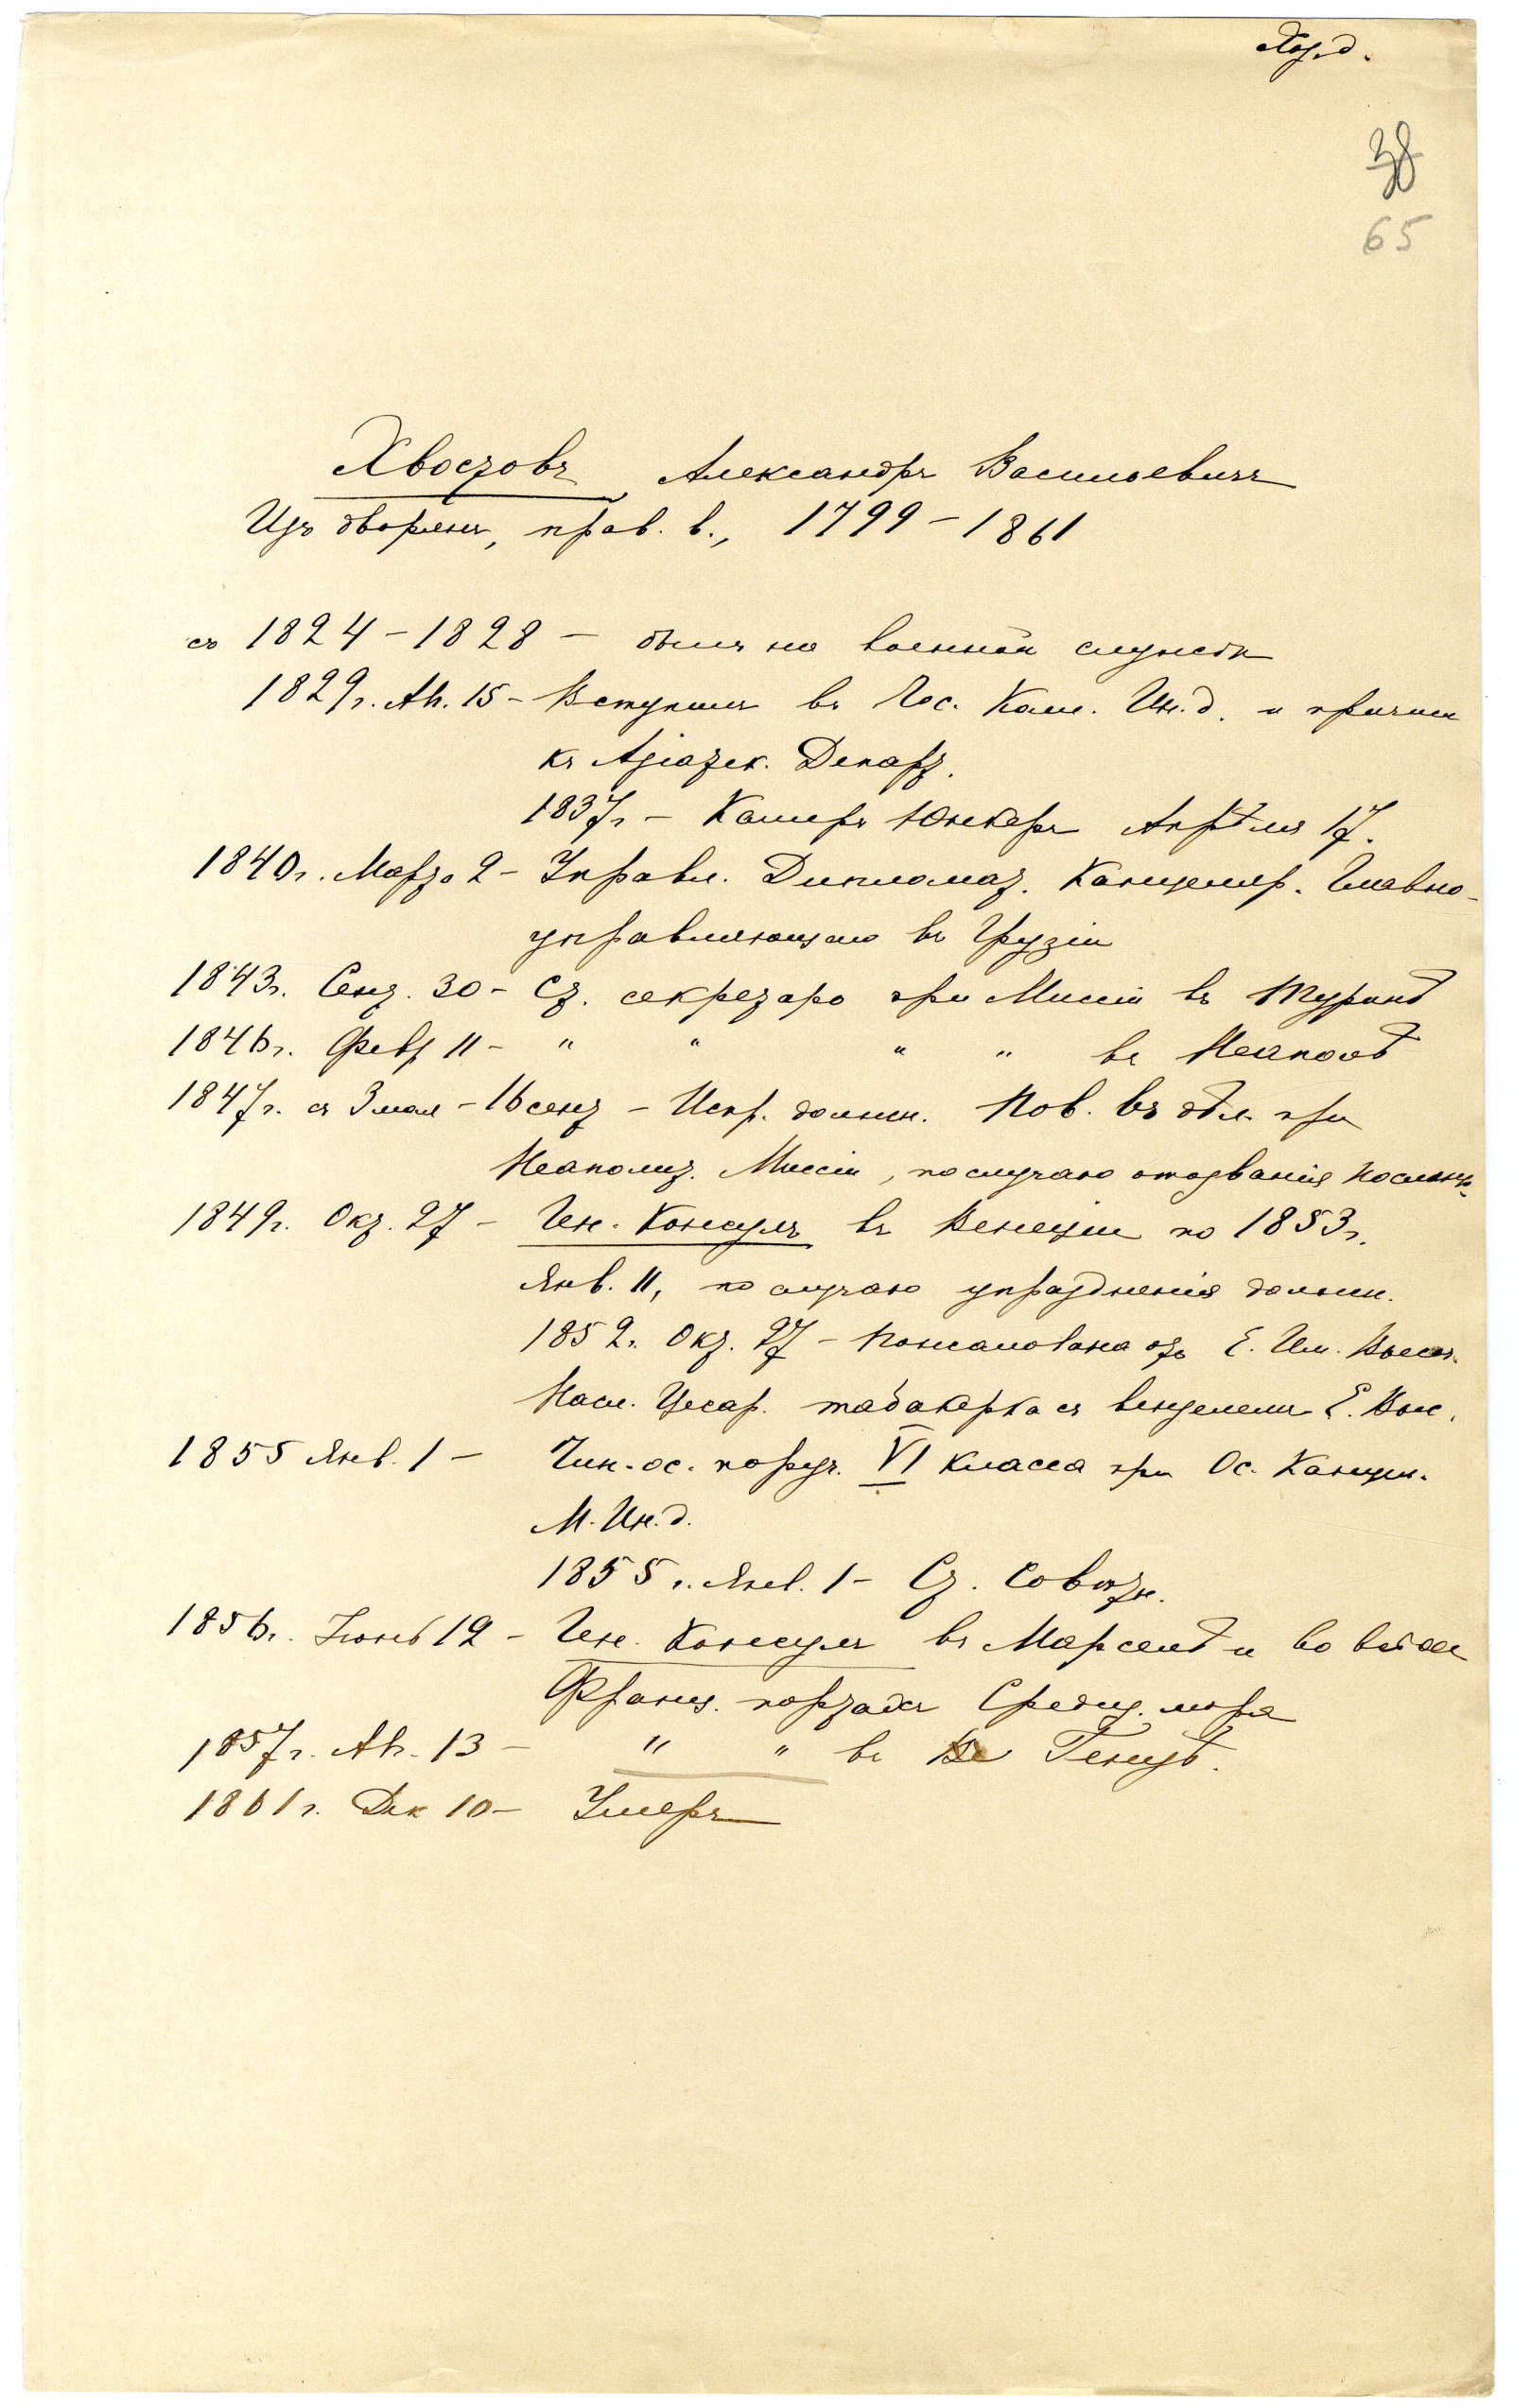 38
65
Хвостовъ, Александръ Васильевичъ
Изъ дворянъ, прав. в., 1799-1861
съ 1824-1828 - былъ на военной службѣ
1829г. Ап. 15 - Вступилъ въ Гос. Колл. Ин. д. и причисл.
къ Азіатск. Департ.
1837г. - Камеръ Юнкеръ Апрѣля 17.
1840г. Марта 2 - Управл. Дипломат. Канцеляр. Главно-
управляющаго въ Грузіи
1843г. Сент. 30 - Ст. секретарь при Миссіи въ Туринѣ
1846г. Февр 11 - " " " " въ Неаполѣ
1847г. съ 3 мая - 16 сент - Испр. должн. Пов. въ дѣл. при
Неаполит. Миссіи, по случаю отозванія посланн.
1849г. Окт. 27 - Ген. Консулъ въ Венеціи по 1853г.
Янв. 11, по случаю упраздненія должн.
1852г. Окт. 27 - Пожалована отъ Е. Им. Высоч.
Насл. Цесар. табакерка съ вензелемъ Е. Выс.
1855 Янв. 1 - Чин. ос. поруч. VI класса при Ос. Канцел.
М. Ин. д.
1855г. Янв. 1 - Ст. Совѣтн.
1856г. Іюнь 12 - Ген. Консулъ въ Марселѣ и во всѣхъ
Франц. портахъ Средиз. моря
1857г. Ап. 13 - " " въ Генуѣ.
1861г. Дек 10 - Умеръ